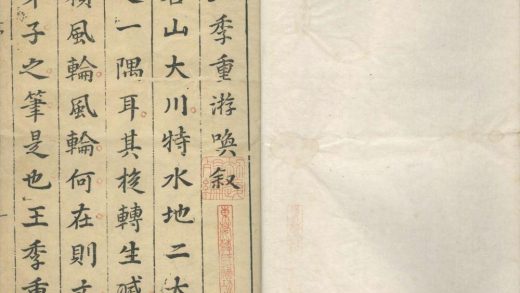 季重游喚叙
名山大川特水地二大
一隅耳其旋轉生滅
風輪風輪何在則
子之筆是也王季重